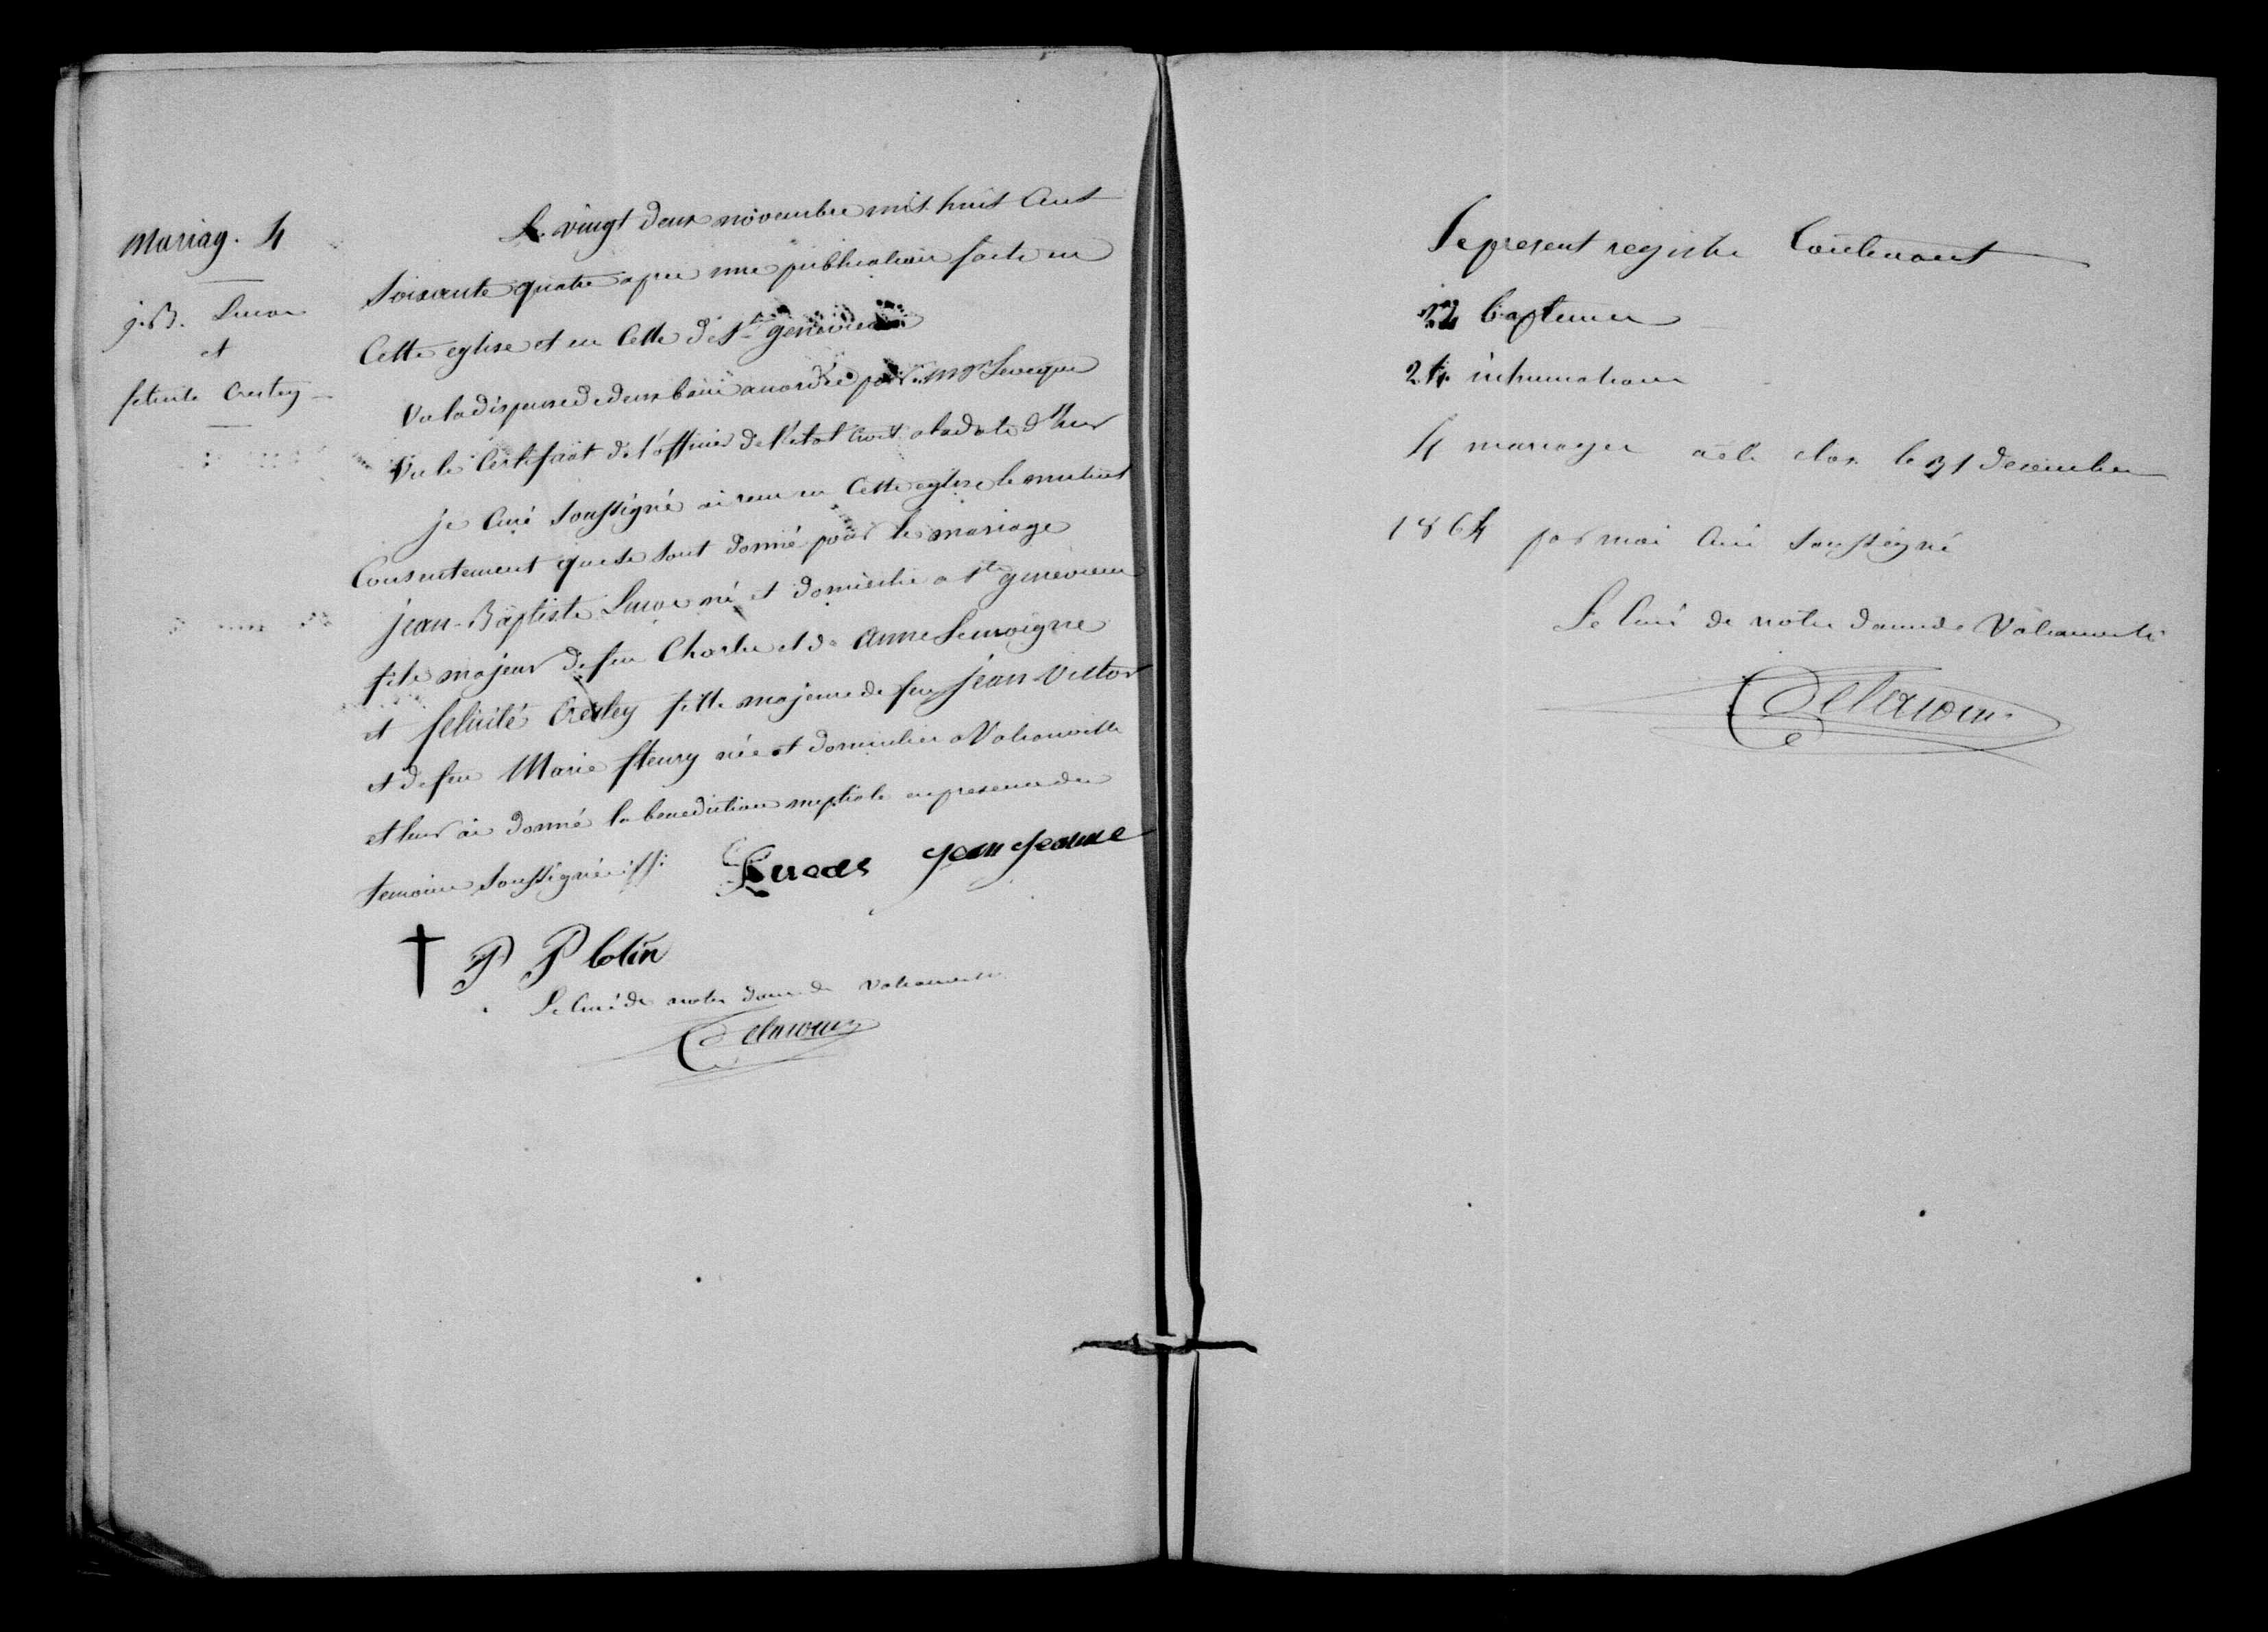 Mariag. 4
J.B. Lucas
et
felicité Cresley
Le vingt deux novembre mil huit cent
soixante quatre apres une publication faite en
Cette eglise et en Celle de Ste genevieve
Vu la dispense de deux bans accordée par Mgr Leveque
Vu le Certificat de l'officier de l'etat Civil a la date d'hier
je Curé soussigné ai recu en Cette eglise le mutuel
Consentement que se sont donné pour le mariage
jean-Baptiste Lucas né et domicilié a Ste genevieve
fils majeur de feu Charles et de Anne Lemoigne
et felicité Cresley fille majeure de feu jean Victor
et de feu Marie fleury née et domiciliée a Valcanville
et leur ai donné la benediction nuptiale en presence des
temoins soussignés
Lucas jean jeanne
P Plotin
Le Curé de notre dame de Valcanville
Delacour
Le present registre Contenant
22 baptemes
24 inhumations
4 mariages a été clos le 31 decembre
1864 par moi Curé soussigné
Le Curé de notre dame de Valcanville
Delacour